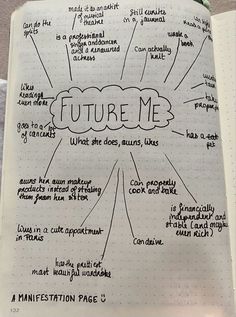 Can do the
splits
made it to an artist
of musical
theatre
Still writes
in a journal
has
really
wrote a
book
is a professional
singer and dancer
and a renowned
actress
Can actually
knit
likes
reading
even more
take
proper
FUTURE ME
goes to a lot
of concerts
What she does, owns, likes
has a cat
pet
owns her own makeup
products instead of stealing
them from her sister
Can properly
cook and bake
is financially
independent and
stable (and maybe
even rich)
lives in a cute appartment
in Paris
Can drive
has the prettiest,
most beautiful wardrobe
A MANIFESTATION PAGE
132